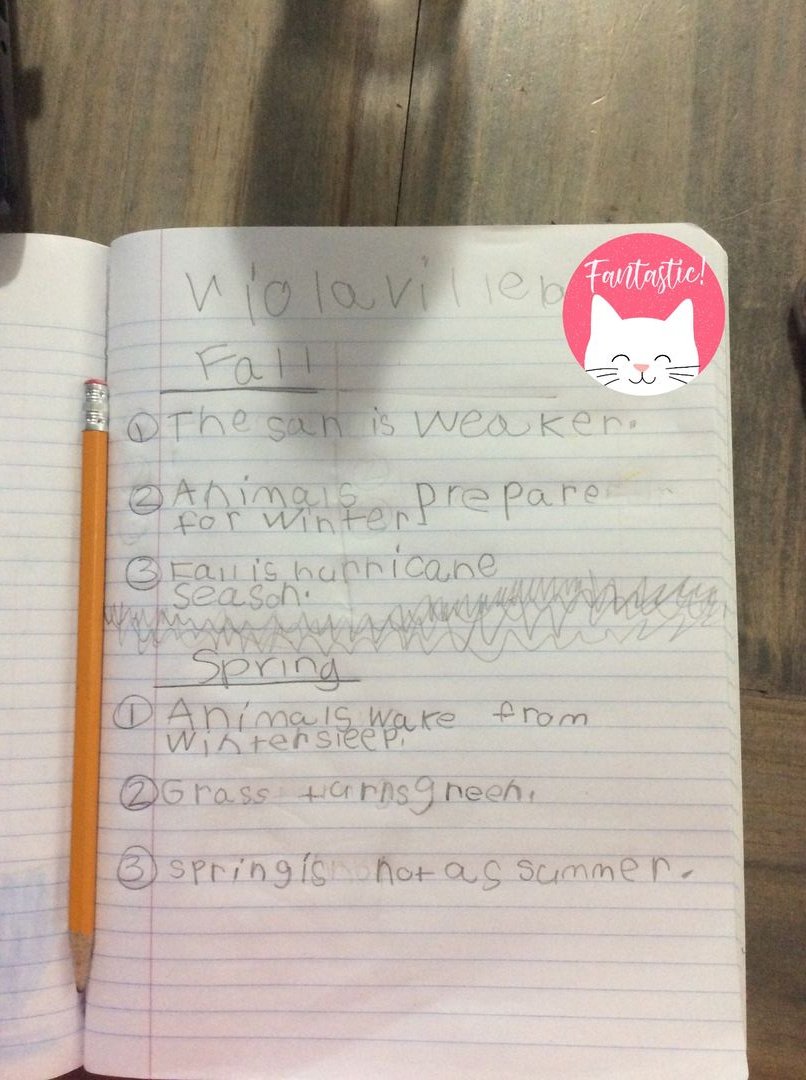 Fantastic!
Fall
① The sun is weaker.
② Animals prepare
for winter
③ Fall is hurricane
season.
Spring
① Animals wake from
winter sleep.
② Grass turns green.
③ spring is not as summer.